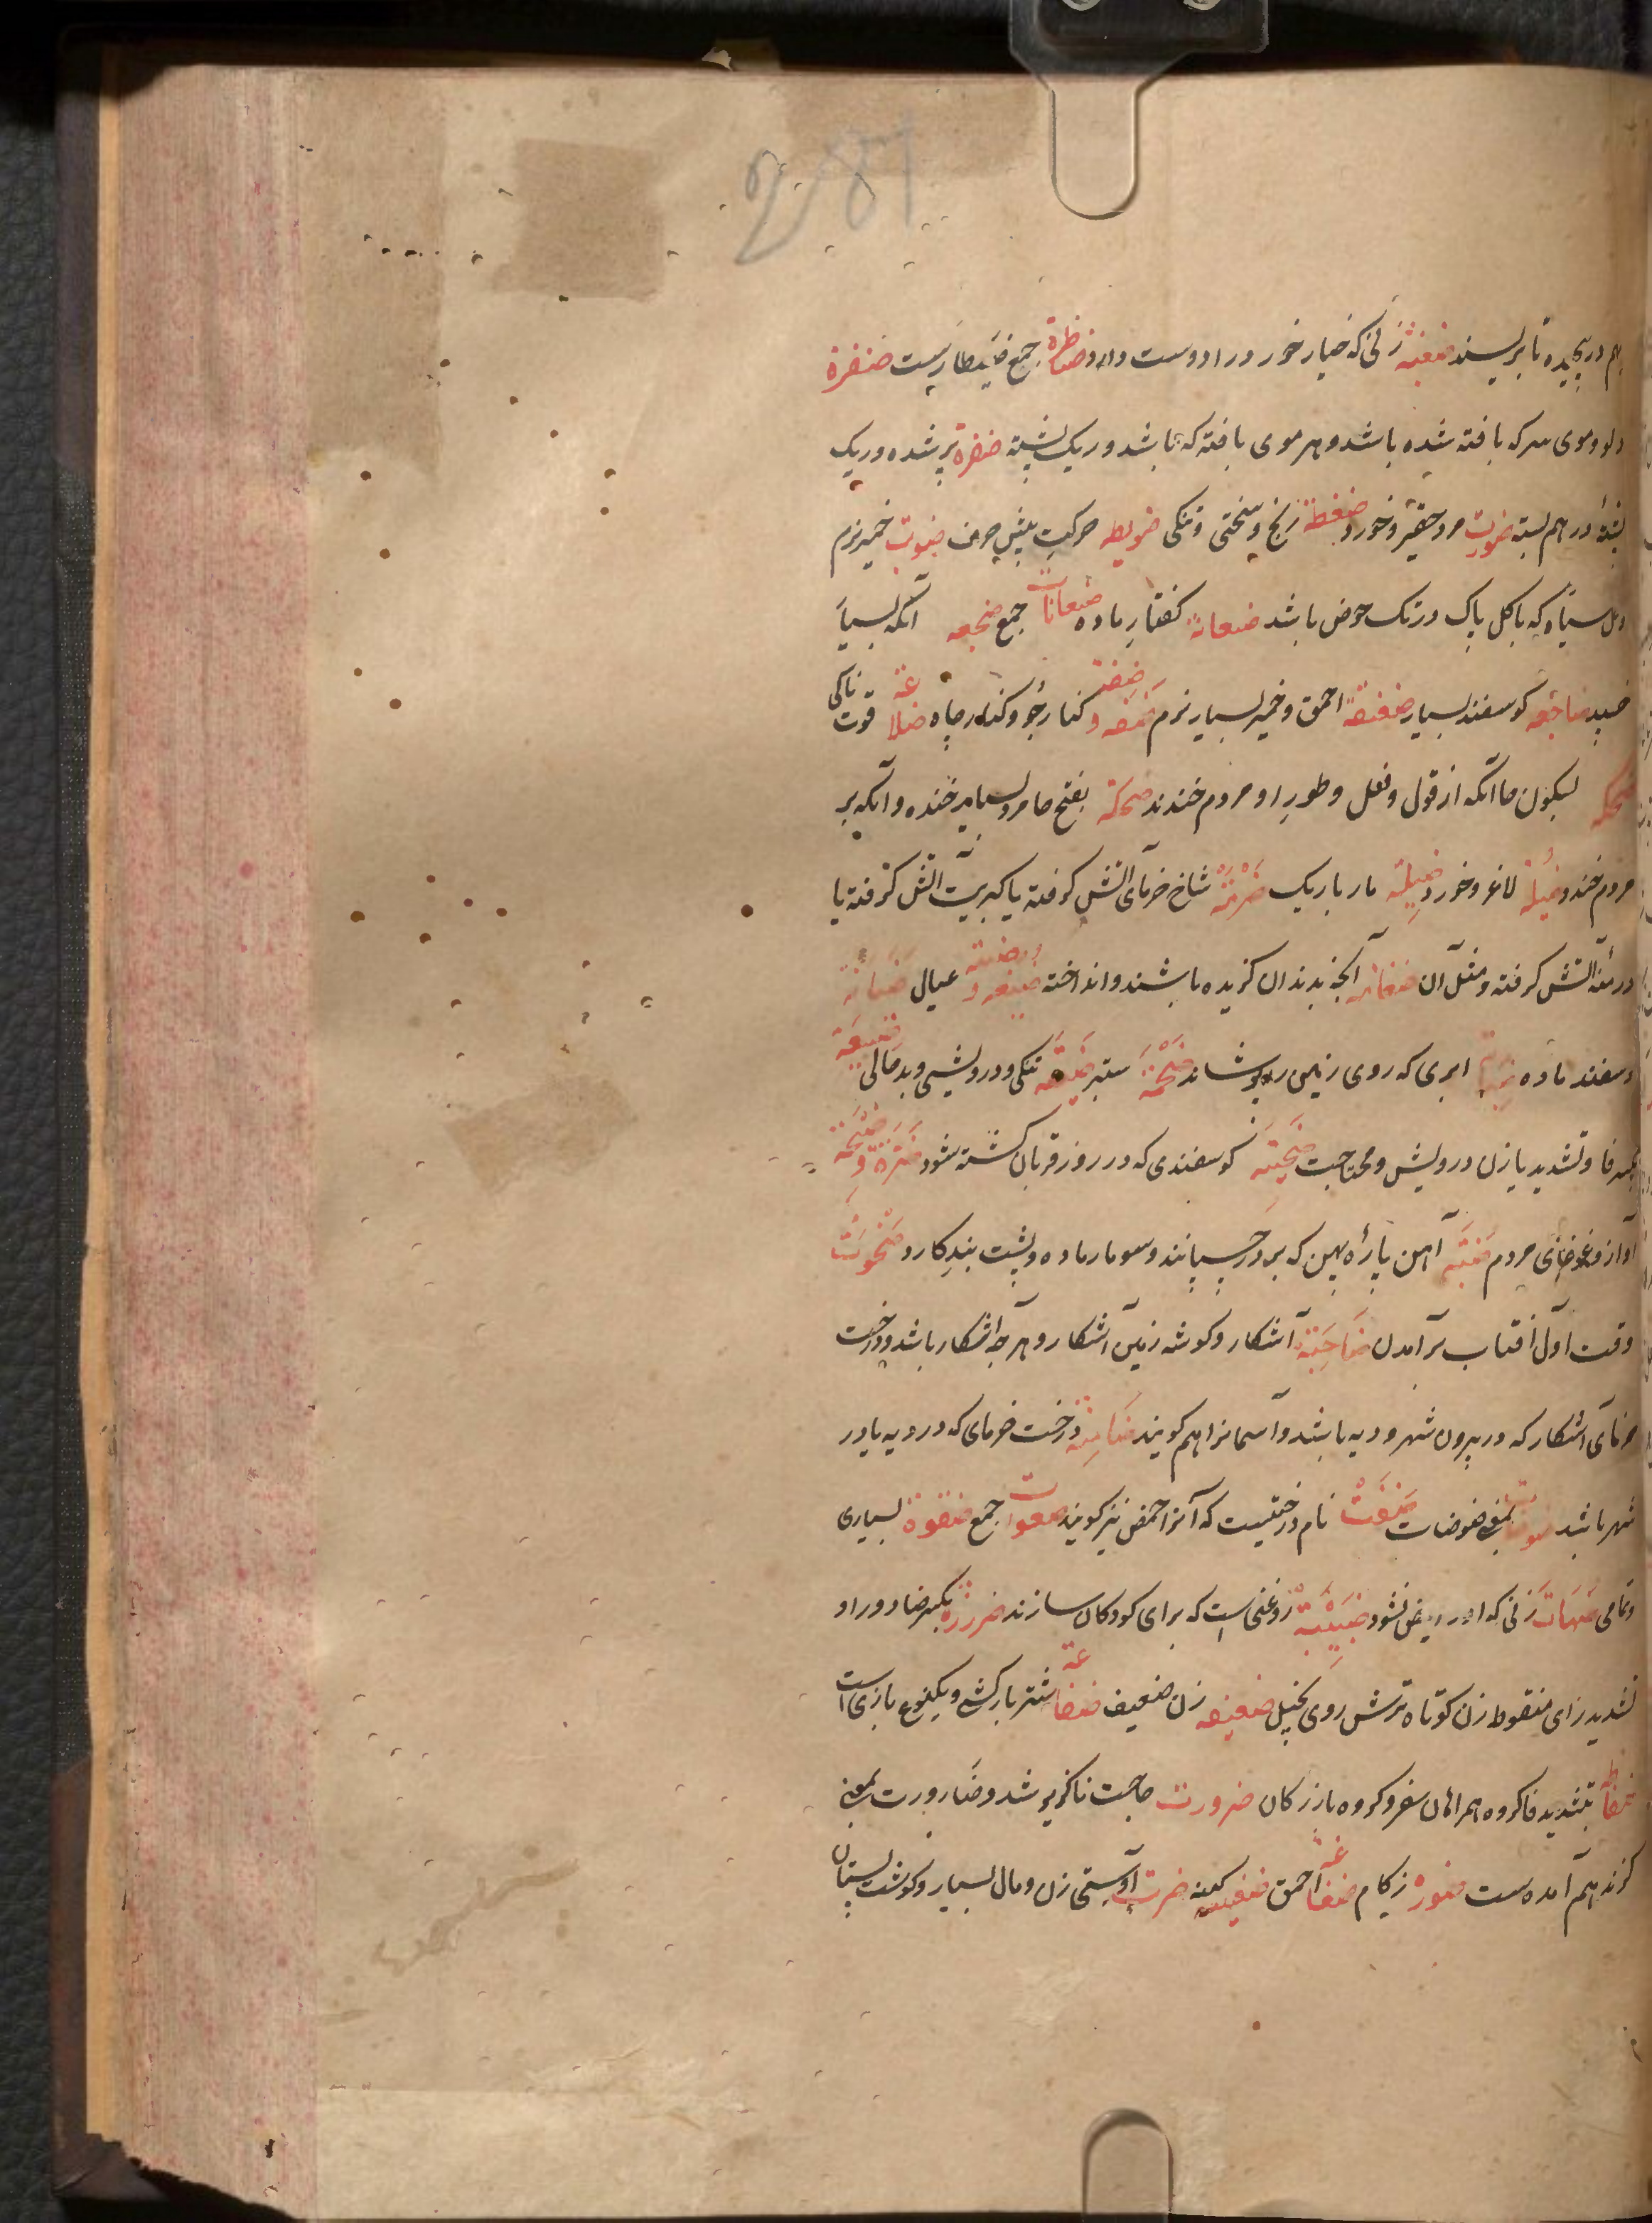 281
هم در پیچیده تا بریسند ضغبته زنی که خیار خورد را دوست دارد ضیاطرة جمع ضیطارست ضفرة
دلو و موی سر که بافته شده باشد و هر موی بافته که باشد و ریک پشته ضفرة پر شده و ریک
پشته در هم بسته ضویت مرد حقیر و خورد ضغطة رنج و سختی و تنکی ضویطه حرکیت پیش حوض ضیوت خمیر نرم
و کل سیاه که با کل پاک در تک حوض باشد ضبعانة کفتار ماده ضبعانات جمع ضجعه آنکه بسیار
خسپد ضاجعه کوسفند بسیار ضفنطة احمق و خمیر بسیار نرم ضفه و ضفة کنار جو و کناره چاه ضلاعة قوت ناکی
ضحکه بسکون حا آنکه از قول و فعل و طور او مردم خندند ضحکة بفتح حا مرد بسیار خنده و آنکه بر
مردم خندد ضئیلة لاغر و خورد ضئیلة مار باریک ضرمة شاخ خرمای آتش کرفته یا کبریت آتش کرفته یا
درمنه آتش کرفته و مثل آن ضغامه آنچه بدندان کزیده باشند و انداخته ضبنه و ضبنه عیال ضانة
کوسفند ماده ابری که روی زمین را بپوشاند ضخمة ستبر ضیقة تنکی و درویشی و بد حالی ضیعة
بکسر فا و تشدید یا زن درویش و محتاجست ضحیة کوسفندی که در روز قربان کشته شود ضرة و ضجة
آواز و غوغای مردم ضبة آهن پاره پهن که بر در چسپانند و سوسمار ماده و پشت بند کارد ضحوت
وقت اول آفتاب برآمدن ضاحیة آشکار و کوشه زمین آشکار و هر چه آشکار باشد و درخت
خرمای آشکار که در بیرون شهر و دیه باشد و آسمانرا هم کویند ضامنة درخت خرمای که در دیه یا در
شهر باشد بمعنی ضوضات ضعت نام درختیست که آنرا حمض نیز کویند ضعوات جمع ضفوة بسیاری
و تمامی ضهیات زنی که او را حیض نشود ضبیبة روغنی است که برای کودکان سازند ضرزة بکسر ضاد و را و
تشدید زای منقوط زن کوتاه ترش روی بخیل ضعیفه زن ضعیف ضفاعة شتر بارکش و یکنوع بازی است
ضفاطه بتشدید فا کروه همراهان سفر و کروه بازرکان ضرورت حاجت ناکزیر شد و ضارورت بمعنی
کزند هم آمده ست ضوره زکام ضفاغة احمق ضغینه کینه ضرت آوستی زن و مال بسیار و کوشت پستان